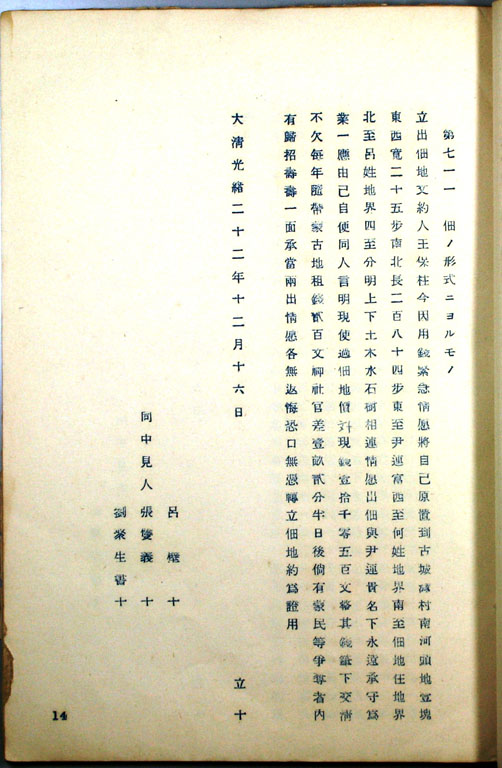 第七一一 佃ノ形式ニヨルモノ
立出佃地文約人王保柱今因用錢緊急情愿將自己原置到古城村南河頭地壹塊
東西寬二十五步南北長二百八十四步東至尹連富西至何姓地界南至佃地任地界
北至呂姓地界四至分明上下土木水石樹相連情愿出佃與尹連貴名下永遠承守爲
業一應由己自使同人言明現使過佃地價現錢壹拾千零五百文其錢下交清
不欠每年隨帶蒙古地租錢貳百文神社官差壹畝貳分半日後倘有蒙民等爭奪者內
有歸招壽壽一面承當兩出情愿各無返悔恐口無憑轉立佃地約爲證用
大淸光緒二十二年十二月十六日 立十
同中見人
呂 十
張雙義 十
劉聚生書十
14